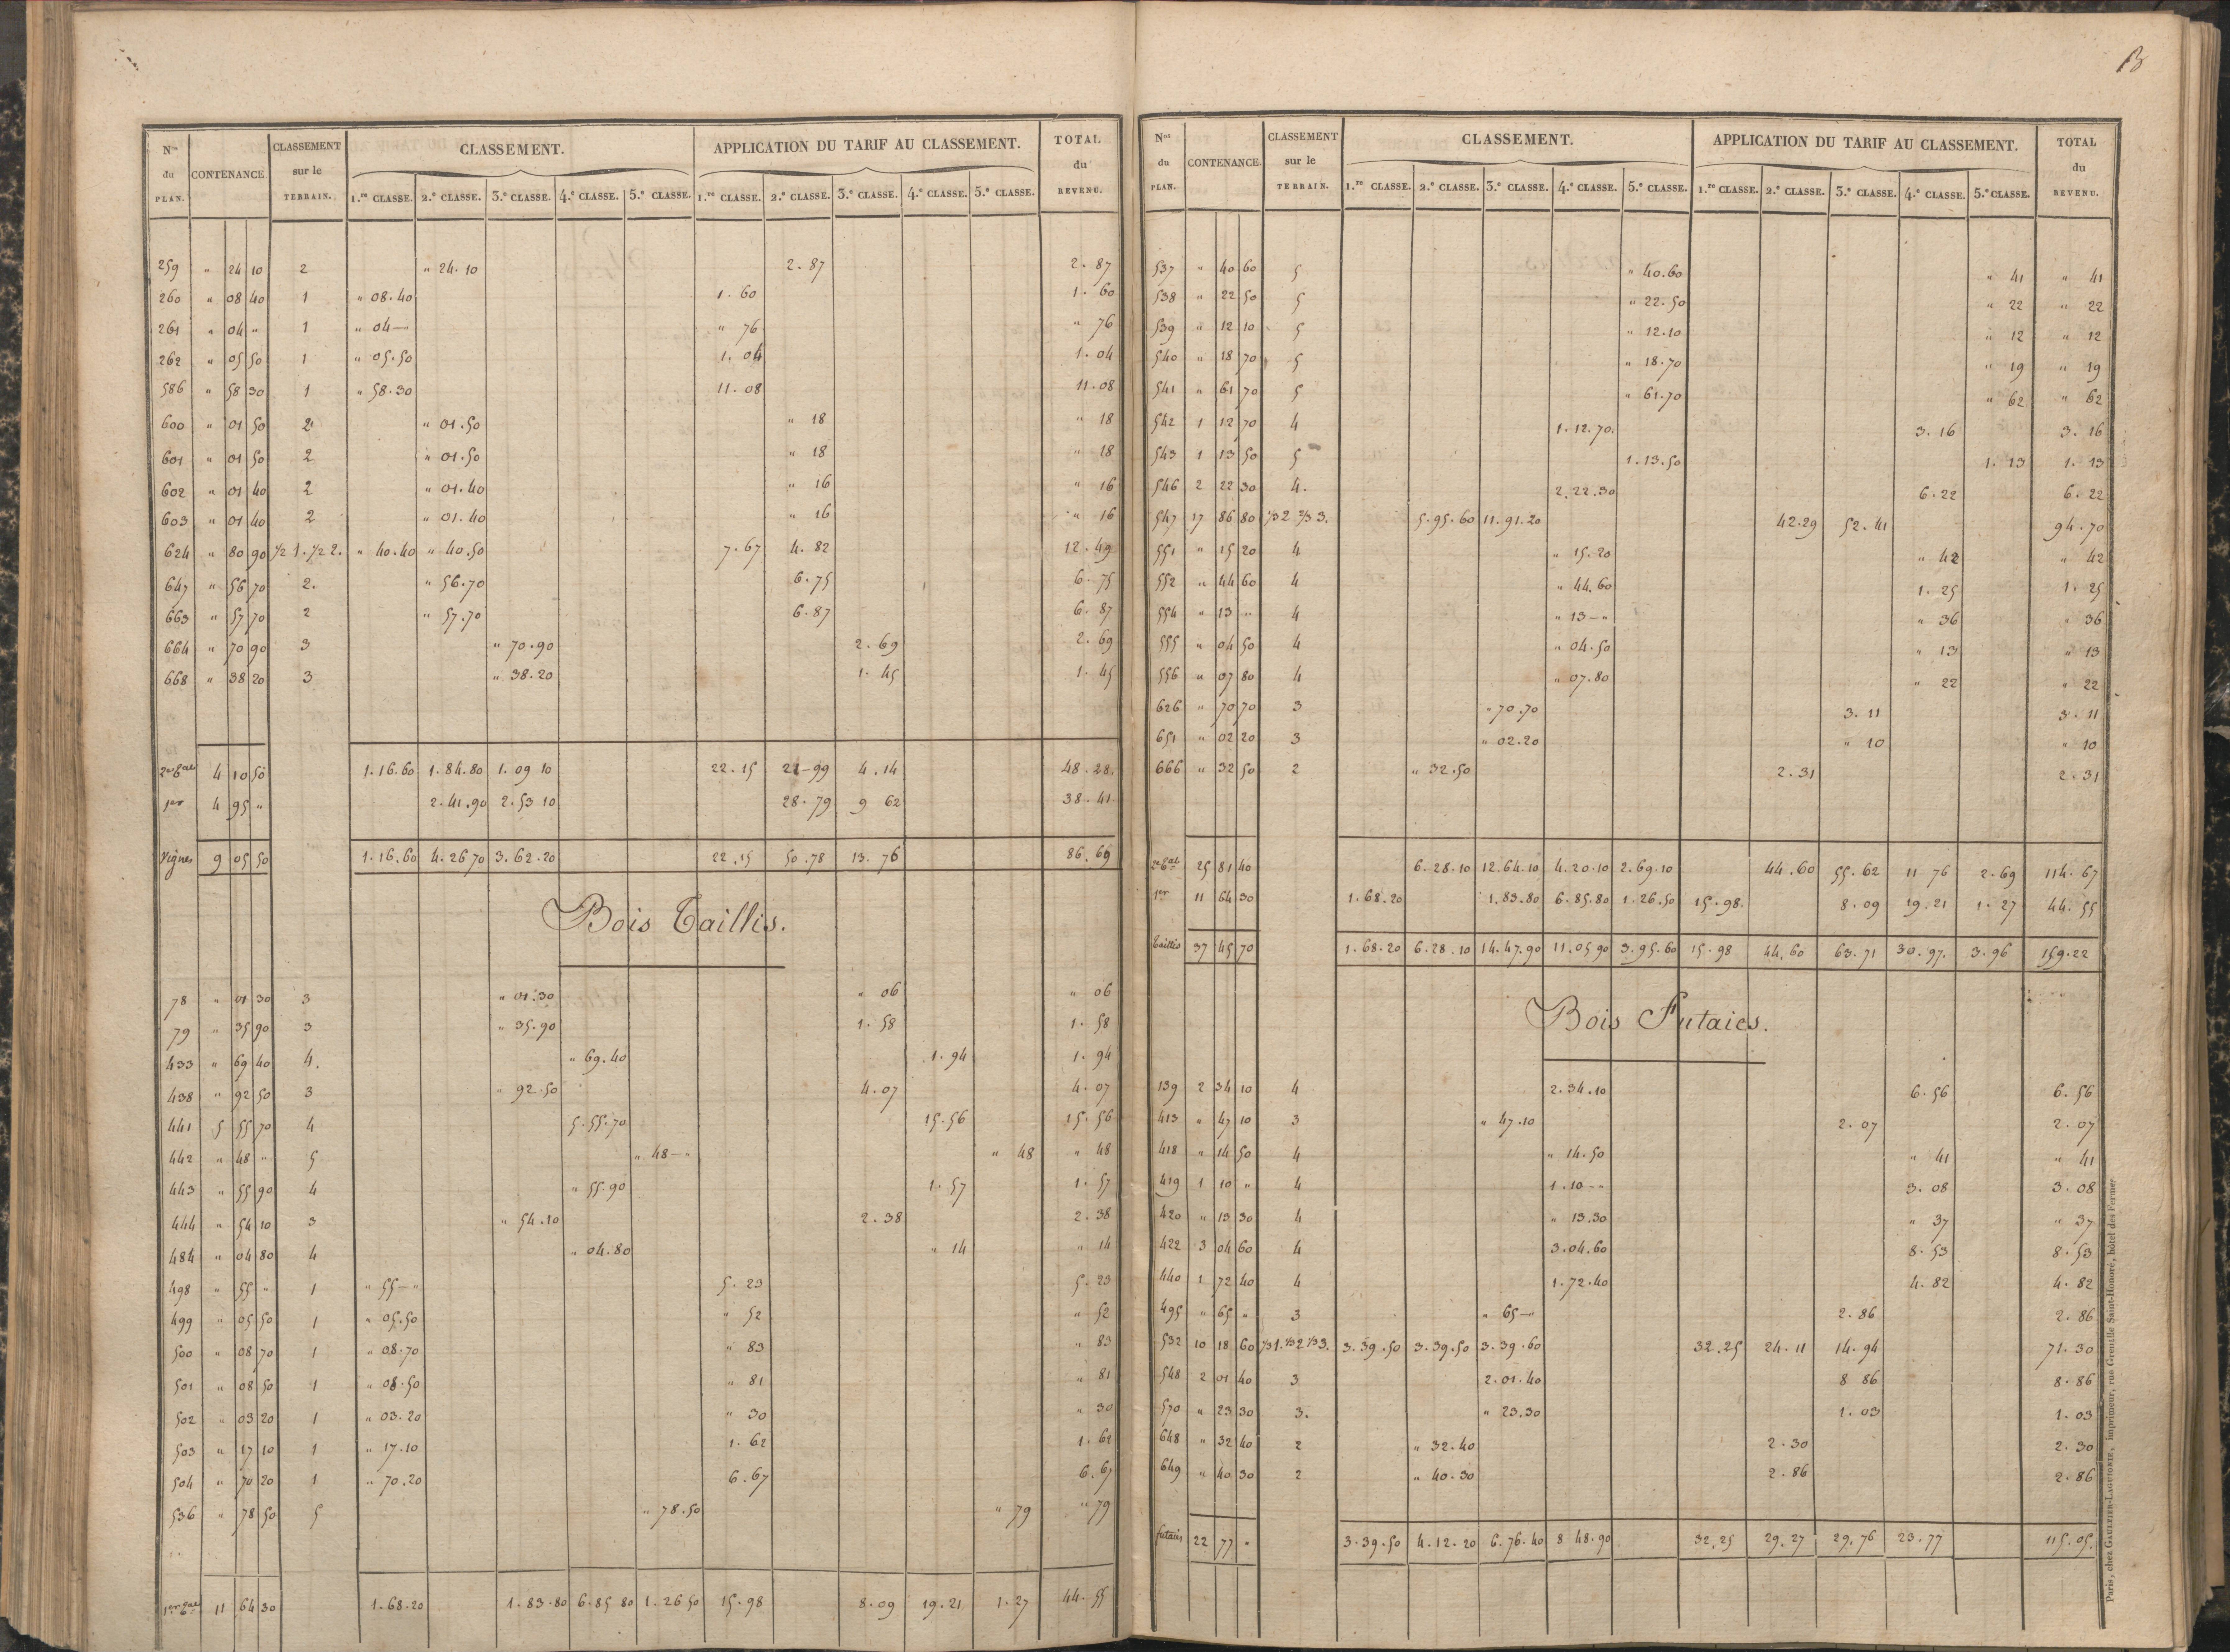 Nos du PLAN. CONTENANCE. CLASSEMENT sur le TERRAIN. CLASSEMENT. APPLICATION DU TARIF AU CLASSEMENT. TOTAL du REVENU.
1.re CLASSE. 2.e CLASSE. 3.e CLASSE. 4.e CLASSE. 5.e CLASSE. 1.re CLASSE. 2.e CLASSE. 3.e CLASSE. 4.e CLASSE. 5.e CLASSE.
259 " 24 10 2 " 24.10 2.87 2.87
260 " 08 40 1 " 08.40 1.60 1.60
261 " 04 " 1 " 04— " 76 " 76
262 " 05 50 1 " 05.50 1.04 1.04
586 " 58 30 1 " 58.30 11.08 11.08
600 " 01 50 2 " 01.50 " 18 " 18
601 " 01 50 2 " 01.50 " 18 " 18
602 " 01 40 2 " 01.40 " 16 " 16
603 " 01 40 2 " 01.40 " 16 " 16
624 " 80 90 1/2 1. 1/2 2. " 40.40 " 40.50 7.67 4.82 12.49
647 " 56 70 2. " 56.70 6.75 6.75
663 " 57 70 2 " 57.70 6.87 6.87
664 " 70 90 3 " 70.90 2.69 2.69
668 " 38 20 3 " 38.20 1.45 1.45
4 10 50 1.16.60 1.84.80 1.09 10 22.15 21-99 4.14 48.28.
1er 4 95 " 2.41.90 2.53 10 28.79 9 62 38.41
Vignes 9 05 50 1.16.60 4.26 70 3.62.20 22.15 50.78 13.76 86.69
Bois Taillis.
78 " 01 30 3 " 01.30 " 06 " 06
79 " 35 90 3 " 35.90 1.58 1.58
433 " 69 40 4. " 69.40 1.94 1.94
438 " 92 50 3 " 92.50 4.07 4.07
441 5 55 70 4 5.55.70 15.56 15.56
442 " 48 " 5 " 48—" " 48 " 48
443 " 55 90 4 " 55.90 1.57 1.57
444 " 54 10 3 " 54.10 2.38 2.38
484 " 04 80 4 " 04.80 " 14 " 14
498 " 55 " 1 " 55—" 5.23 5.23
499 " 05 50 1 " 05.50 " 52 " 52
500 " 08 70 1 " 08.70 " 83 " 83
501 " 08 50 1 " 08.50 " 81 " 81
502 " 03 20 1 " 03.20 " 30 " 30
503 " 17 10 1 " 17.10 1.62 1.62
504 " 70 20 1 " 70.20 6.67 6.67
536 " 78 50 5 " 78.50 " 79 " 79
11 64 30 1.68.20 1.83.80 6.85 80 1.26 50 15.98 8.09 19.21 1.27 44.55
Nos du PLAN. CONTENANCE. CLASSEMENT sur le TERRAIN. CLASSEMENT. APPLICATION DU TARIF AU CLASSEMENT. TOTAL du REVENU.
1.re CLASSE. 2.e CLASSE. 3.e CLASSE. 4.e CLASSE. 5.e CLASSE. 1.re CLASSE. 2.e CLASSE. 3.e CLASSE. 4.e CLASSE. 5.e CLASSE.
537 " 40 60 5 " 40.60 " 41 " 41
538 " 22 50 5 " 22.50 " 22 " 22
539 " 12 10 5 " 12.10 " 12 " 12
540 " 18 70 5 " 18.70 " 19 " 19
541 " 61 70 5 " 61.70 " 62 " 62
542 1 12 70 4 1.12.70. 3.16 3.16
543 1 13 50 5 1.13.50 1.13 1.13
546 2 22 30 4. 2.22.30 6.22 6.22
547 17 86 80 1/3 2 2/3 3. 5.95.60 11.91.20 42.29 52.41 94.70
551 " 15 20 4 " 15.20 " 42 " 42
552 " 44 60 4 " 44.60 1.25 1.25
554 " 13 " 4 " 13—" " 36 " 36
555 " 04 50 4 " 04.50 " 13 " 13
556 " 07 80 4 " 07.80 " 22 " 22
626 " 70 70 3 " 70.70 3.11 3.11
651 " 02 20 3 " 02.20 " 10 " 10
666 " 32 50 2 " 32.50 2.31 2.31
25 81 40 6.28.10 12.64.10 4.20.10 2.69.10 44.60 55.62 11 76 2.69 114.67
1er 11 64 30 1.68.20 1.83.80 6.85.80 1.26.50 15.98. 8.09 19.21 1.27 44.55
Taillis 37 45 70 1.68.20 6.28.10 14.47.90 11.05 90 3.95.60 15.98 44.60 63.71 30.97. 3.96 159.22
Bois Futaies.
139 2 34 10 4 2.34.10 6.56 6.56
413 " 47 10 3 " 47.10 2.07 2.07
418 " 14 50 4 " 14.50 " 41 " 41
419 1 10 " 4 1.10-- 3.08 3.08
420 " 13 30 4 " 13.30 " 37 " 37
422 3 04 60 4 3.04.60 8.53 8.53
440 1 72 40 4 1.72.40 4.82 4.82
495 " 65 " 3 " 65—" 2.86 2.86
532 10 18 60 1/3 1. 1/3 2 1/3 3. 3.39.50 3.39.50 3.39.60 32.25 24.11 14.94 71.30
548 2 01 40 3 2.01.40 8 86 8.86
570 " 23 30 3. " 23.30 1.03 1.03
648 " 32 40 2 " 32.40 2.30 2.30
649 " 40 30 2 " 40.30 2.86 2.86
futaies 22 77 " 3.39.50 4.12.20 6.76.40 8 48.90 32.25 29.27 29.76 23.77 115.05.
Paris, chez GAULTIER-LAGUIONIE, imprimeur, rue Grenelle Saint-Honoré, hôtel des Fermes